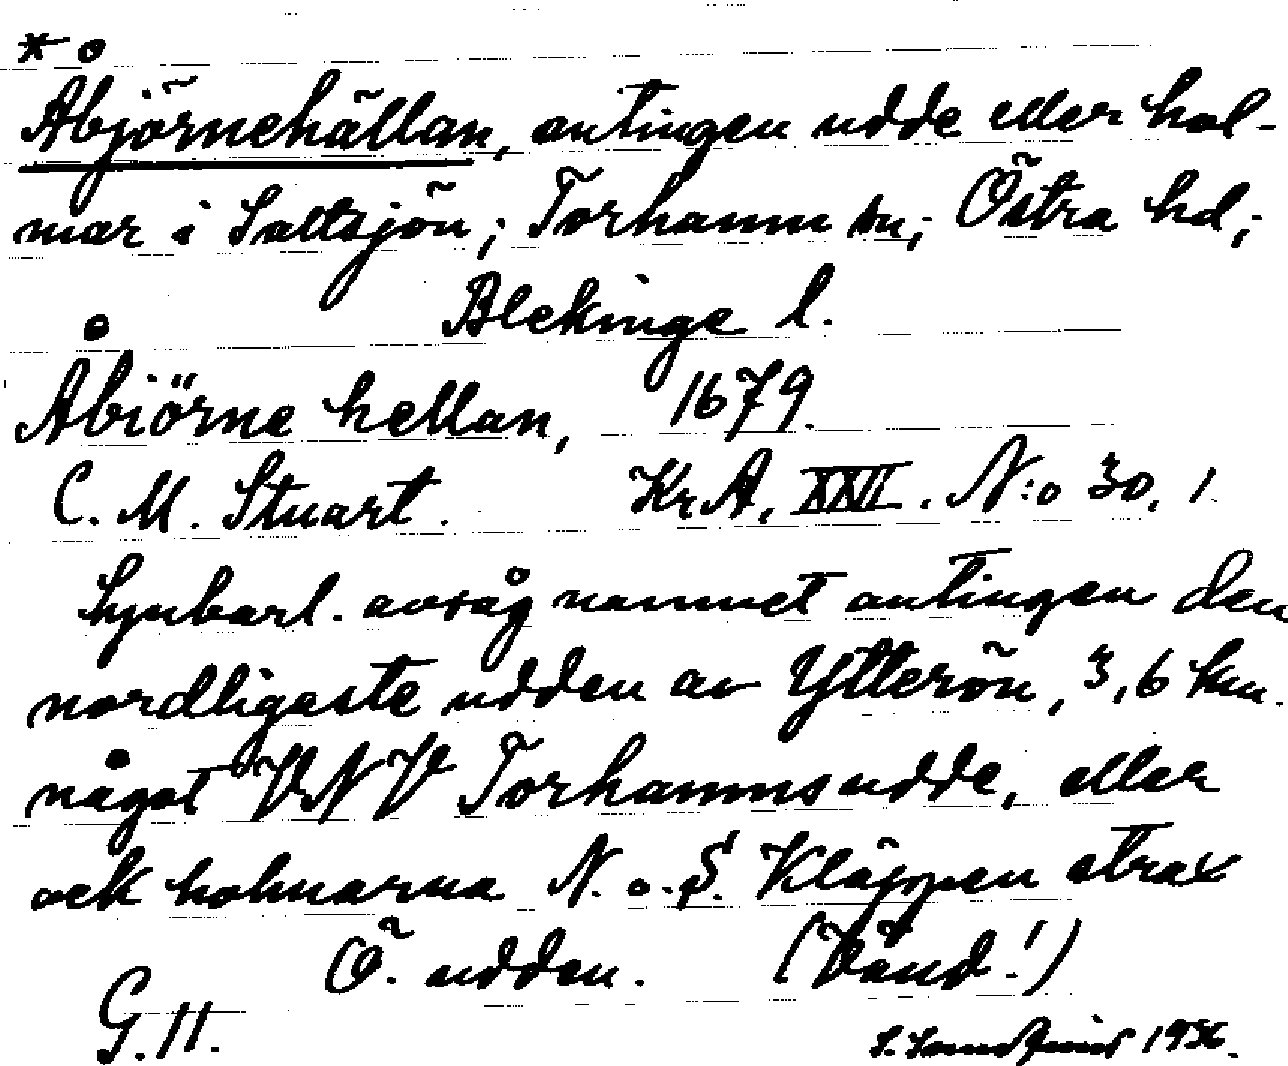 *
Åbjörnehällan, antingen udde eller hol-
mar i Saltsjön; Torhamn sn; Östra hd;
Blekinge l.
Åbiörne hellan, 1679.
C. M. Stuart. Kr.A, XXVI. N:o 30, 1.
Synbarl. avsåg namnet antingen den
nordligaste udden av Ytterön, 3,6 km.
något VNV Torhamnsudde, eller
ock holmarna N. o. S. Kläppen strax
Ö. udden. (Vänd!)
G. 11.
1936.